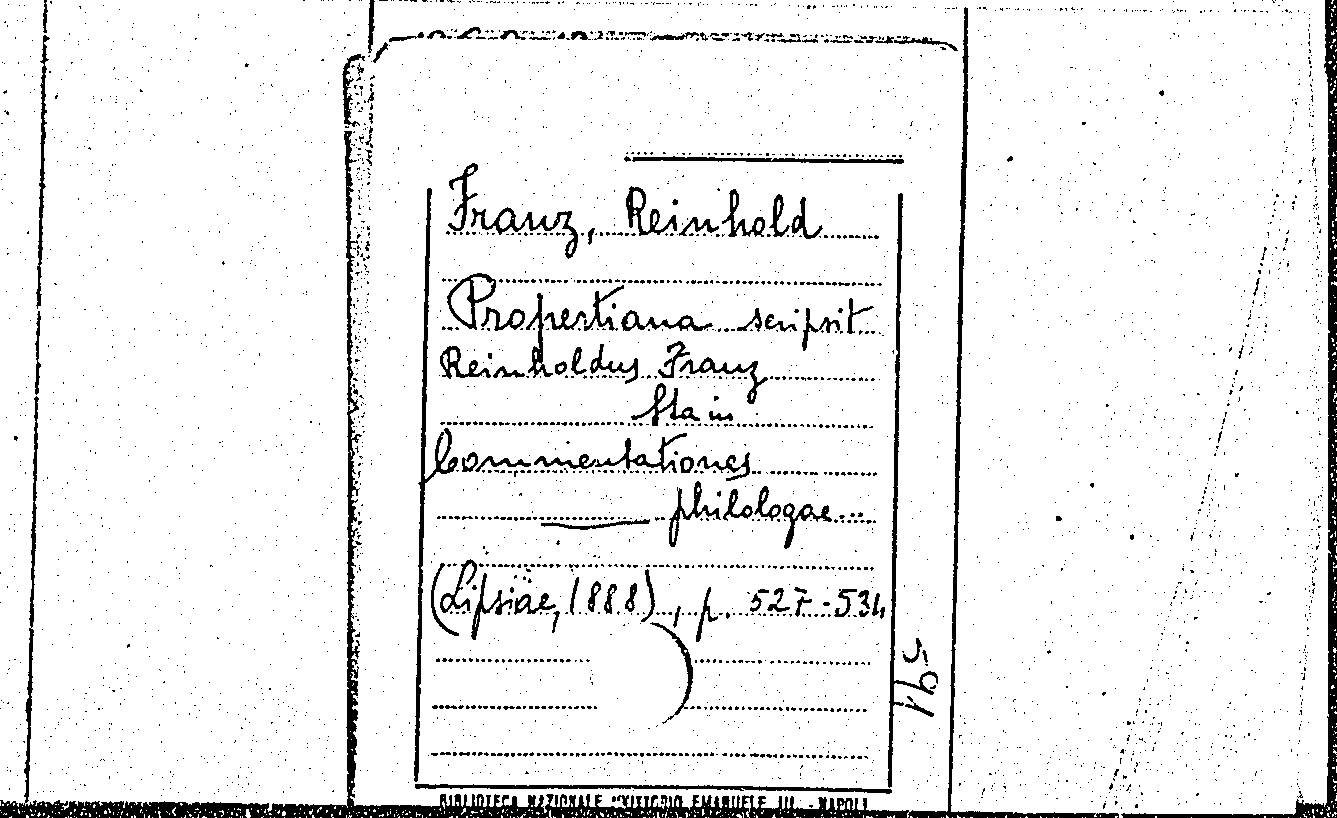 Franz, Reinhold
Propertiana scripsit
Reinholdus Franz
Sta in
Commentationes
philologae...
(Lipsiae, 1888), p. 527-534
591
BIBLIOTECA NAZIONALE "VITTORIO EMANUELE III" - NAPOLI